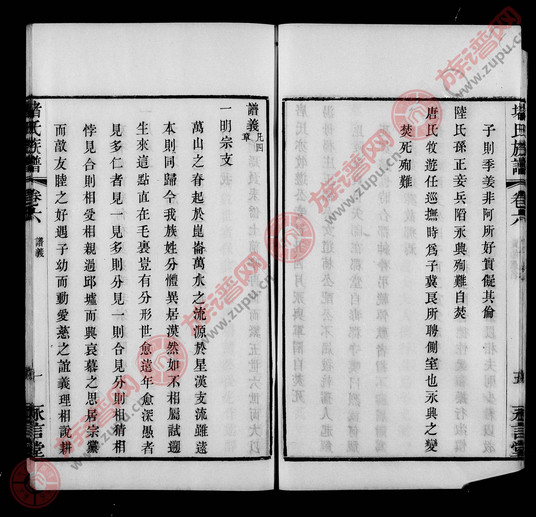 子則季姜非阿所好實儗其倫
陸氏孫正妾兵陷永興殉難自焚
唐氏牧遊任巡撫時爲子冀良所聘側室也永興之變
焚死殉難
氏族譜
卷六
永言堂
譜義 凡四章
一明宗支
萬山之脊起於崑崙萬水之流源於星漢支流雖遠
本則同歸今我族姓分體異居漠然如不相屬試遡
生來這點直在毛裏豈有分形世愈遠年愈深愚者
見多仁者見一見多則分見一則合見分則相猜相
悖見合則相愛相親過邱墟而興哀慕之思居宗黨
而敵友睦之好遇子幼而動愛慈之誼義理相說耕
氏族譜
卷六
譜義
一
永言堂
族谱网
www.zupu.cn